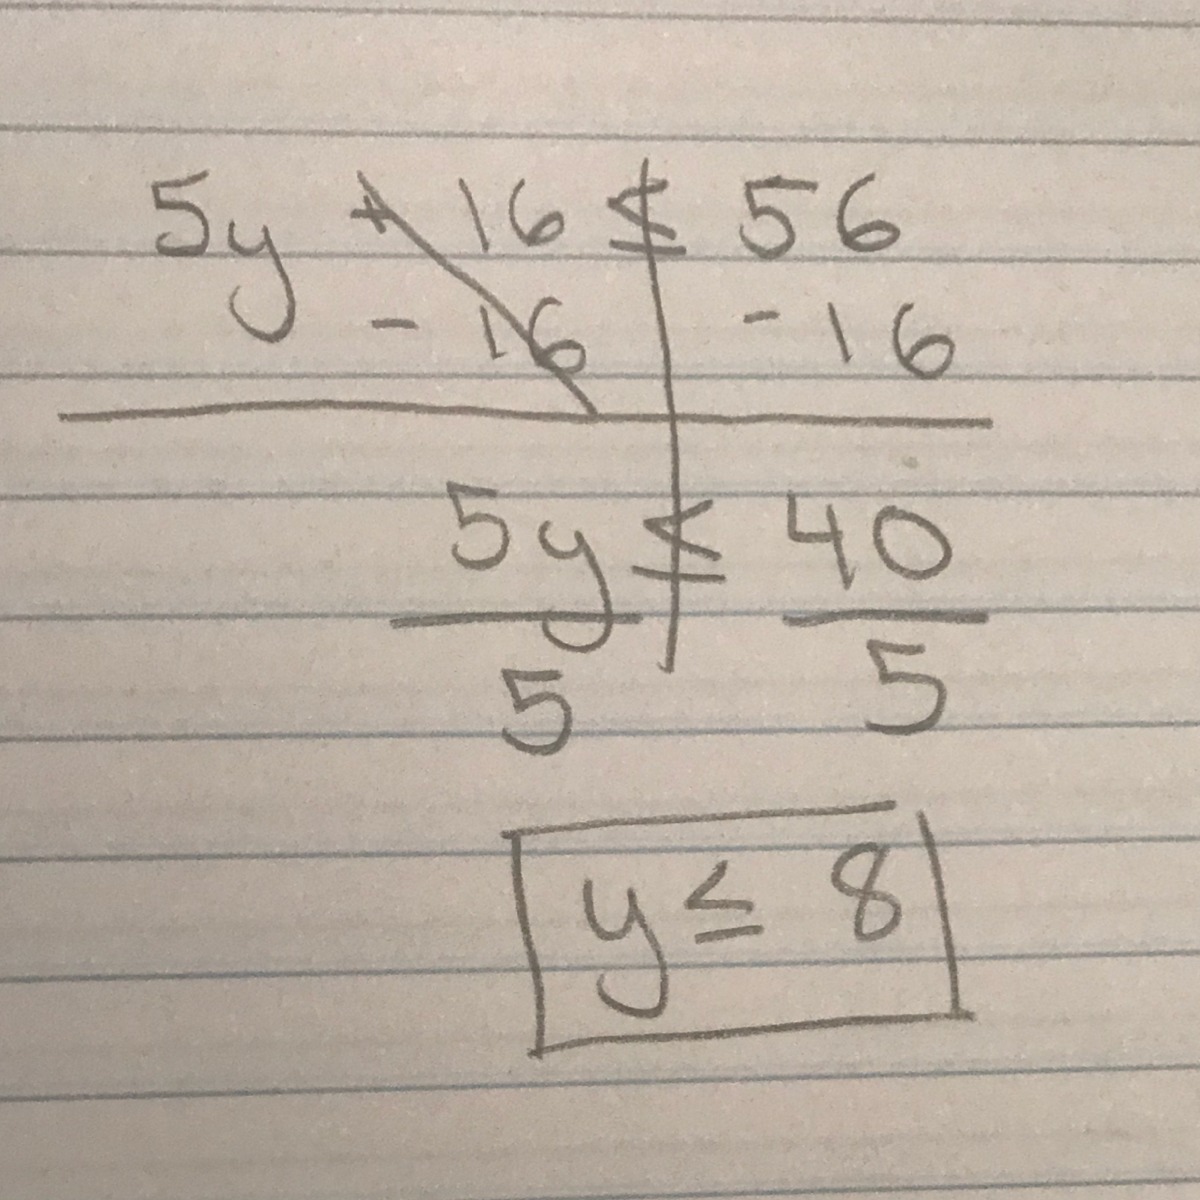 5y + 16 ≤ 56
- 16 - 16
5y ≤ 40
5 5
y ≤ 8